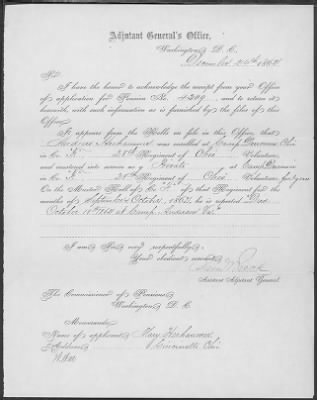 Adjutant General's Office,
Washington, D. C.
December 24th 1862
Sir:
I have the honor to acknowledge the receipt from your Office
of application for Pension No. 4209, and to return it
herewith, with such information as is furnished by the files of this
Office.
It appears from the Rolls on file in this Office, that
was enrolled at Camp Dennison Ohio
in Co. "K", 28th Regiment of Ohio Volunteers,
and mustered into service as a Private at Camp Dennison
in Co. "K", 28th Regiment of Ohio Volunteers,
On the Muster Roll of Co. "K" of that Regiment for the
months of September October, 1862, he is reported "Died
October
I am, Sir, very respectfully,
Your obedient servant,
Assistant Adjutant General.
The Commissioner of Pensions
Washington, D. C.
Memoranda:
Name of applicant, Mary
Address, Cincinnati, Ohio